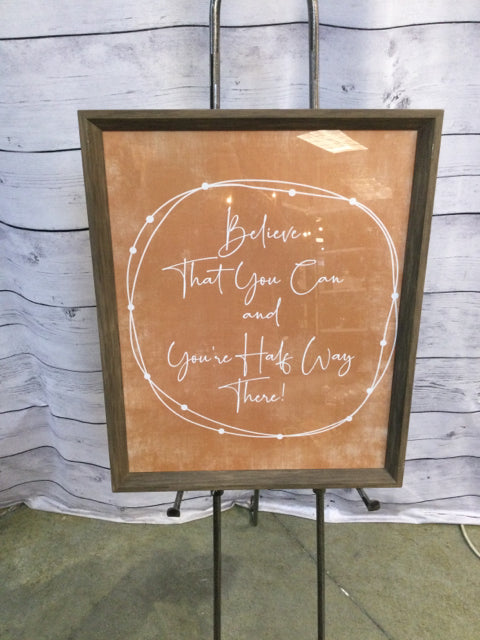 Believe
That You Can
and
You're Half Way
There!